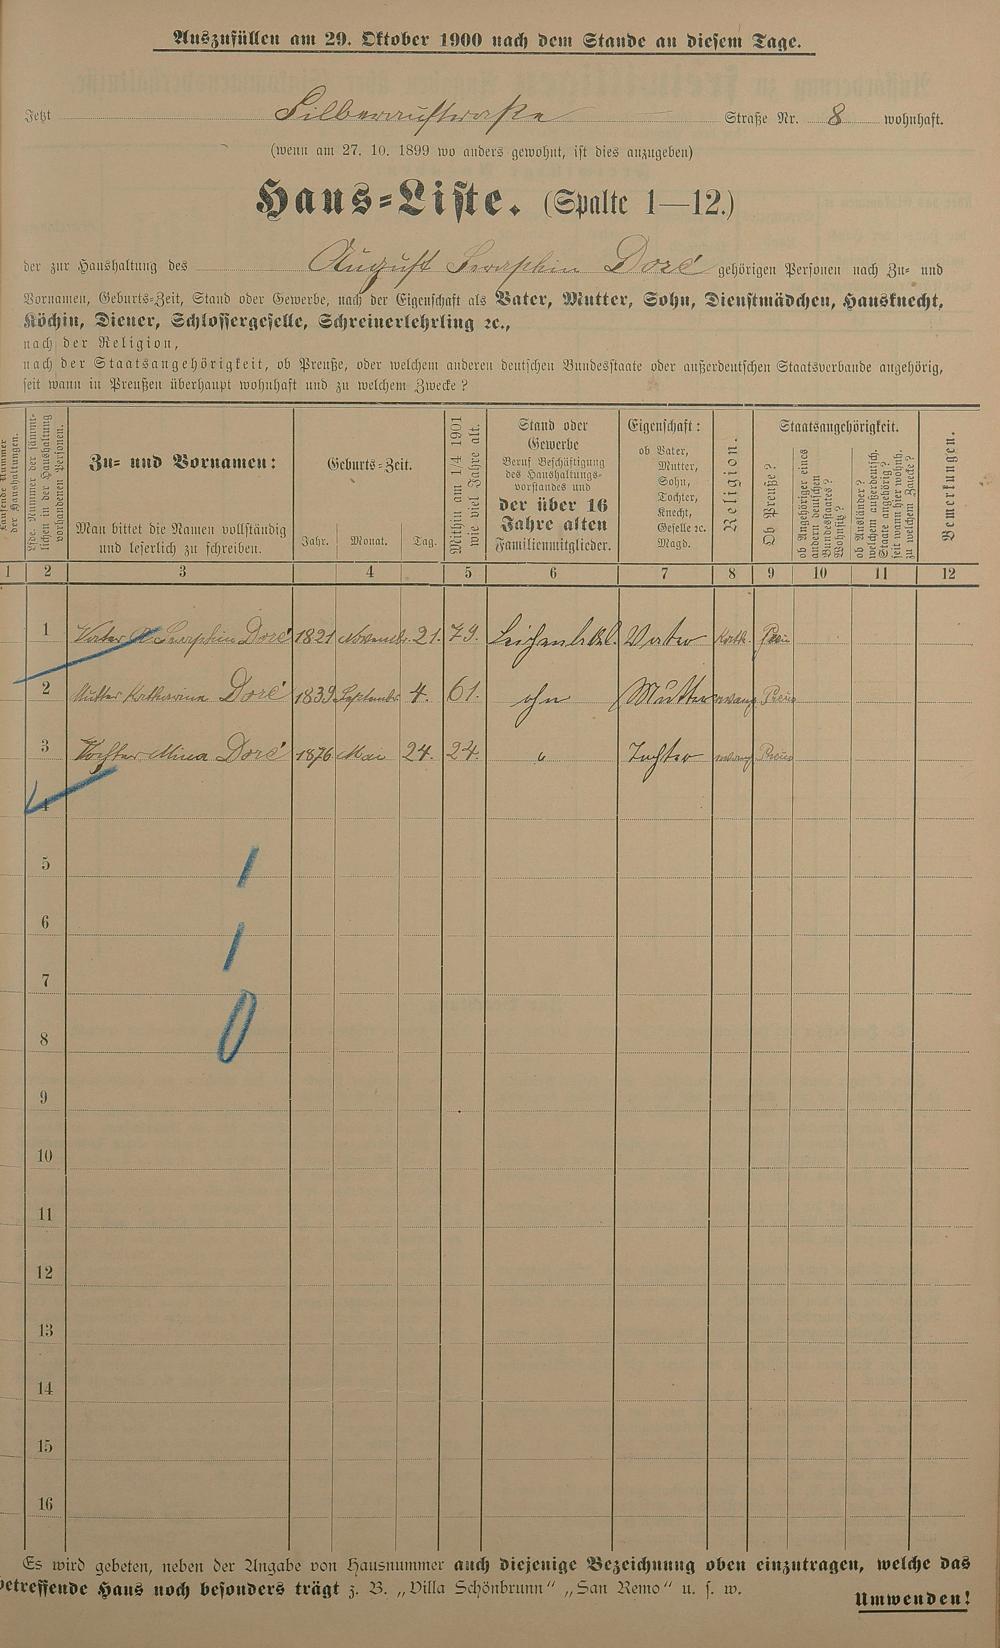 Auszufüllen am 29. Oktober 1900 nach dem Stande an diesem Tage.
Jetzt Silberaustraße Straße Nr. 8 wohnhaft.
(wenn am 27. 10. 1899 wo anders gewohnt, ist dies anzugeben)
Haus-Liste. (Spalte 1—12.)
der zur Haushaltung des August Seraphin Doré gehörigen Personen nach Zu- und
Vornamen, Geburts-Zeit, Stand oder Gewerbe, nach der Eigenschaft als Vater, Mutter, Sohn, Dienstmädchen, Hausknecht,
Köchin, Diener, Schlossergeselle, Schreinerlehrling ꝛc.,
nach der Religion,
nach der Staatsangehörigkeit, ob Preuße, oder welchem anderen deutschen Bundesstaate oder außerdeutschen Staatsverbande angehörig,
seit wann in Preußen überhaupt wohnhaft und zu welchem Zwecke?
Laufende Nummer
der Haushaltungen.
Lfde. Nummer der sämmt-
lichen in der Haushaltung
vorhandenen Personen.
Zu- und Vornamen:
Man bittet die Namen vollständig
und leserlich zu schreiben.
Geburts-Zeit.
Jahr. Monat. Tag.
Mithin am 1/4 1901
wie viel Jahre alt.
Stand oder
Gewerbe
Beruf Beschäftigung
des Haushaltungs-
vorstandes und
der über 16
Jahre alten
Familienmitglieder.
Eigenschaft:
ob Vater,
Mutter,
Sohn,
Tochter,
Knecht,
Geselle ꝛc.
Magd.
Religion.
Staatsangehörigkeit.
Ob Preuße?
ob Angehöriger eines
andern deutschen
Bundesstaates?
Wohnsitz?
ob Ausländer?
welchem außerdeutsch.
Staate angehörig?
seit wann hier wohnh.
zu welchem Zwecke?
Bemerkungen.
1 2 3 4 5 6 7 8 9 10 11 12
1 Vater A Seraphin Doré 1821 November 21. 79. Vater Kath.
2 Mutter Katharina Doré 1839 September 4. 61. ohn Mutter evang Preus
3 Tochter Mina Doré 1876 Mai 24. 24. " Tochter evang Preus
4
5
1
6
1
7
8
0
9
10
11
12
13
14
15
16
Es wird gebeten, neben der Angabe von Hausnummer auch diejenige Bezeichnung oben einzutragen, welche das
betreffende Haus noch besonders trägt z. B. „Villa Schönbrunn“ „San Remo“ u. s. w.
Umwenden!